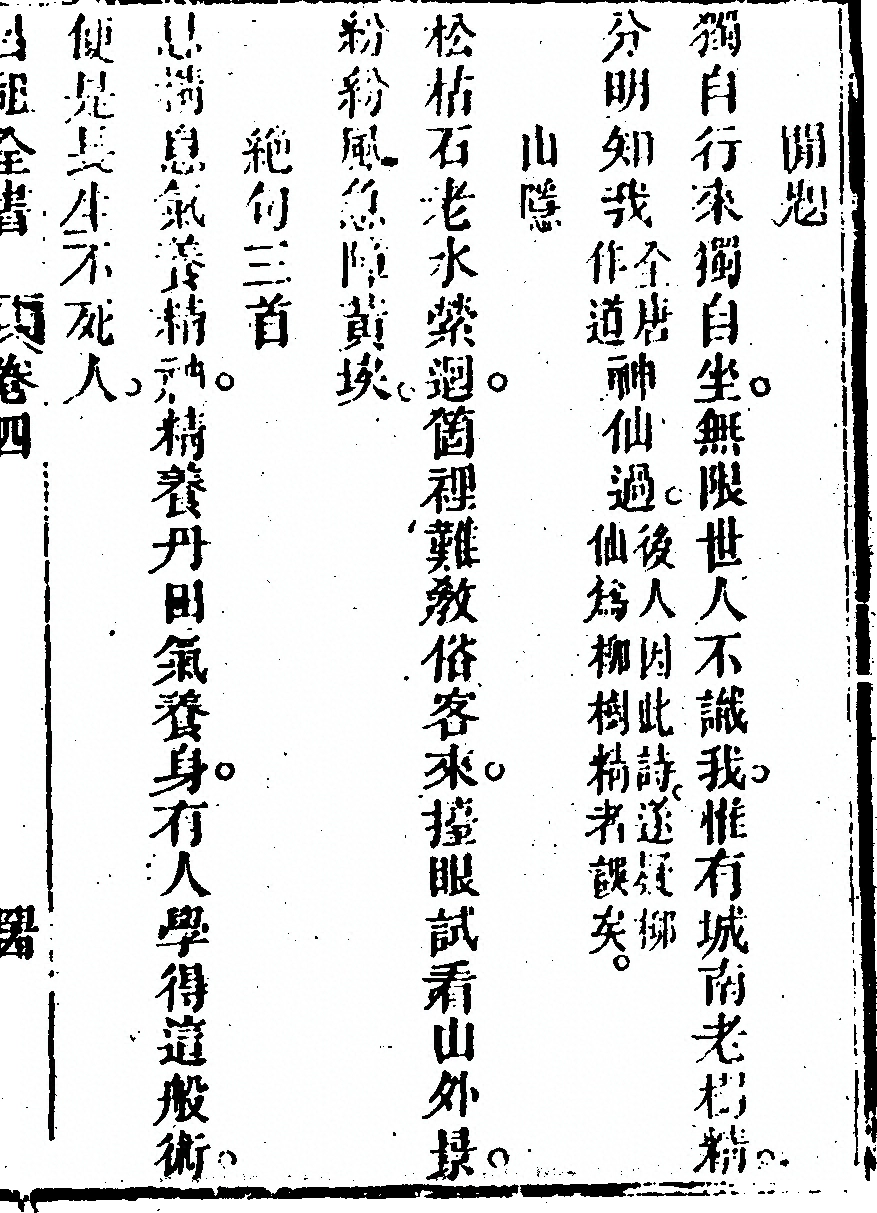 閒題
獨自行來獨自坐。無限世人不識我。惟有城南老樹精。
分明知我全唐作道神仙過。後人因此詩。遂疑柳仙爲柳樹精者誤矣。
山隱
松枯石老水縈迴。箇裡難教俗客來。擡眼試看山外景。
紛紛風急障黃埃。
絕句三首
息精息氣養精神。精養丹田氣養身。有人學得這般術。
便是長生不死人。
呂祖全書 卷四